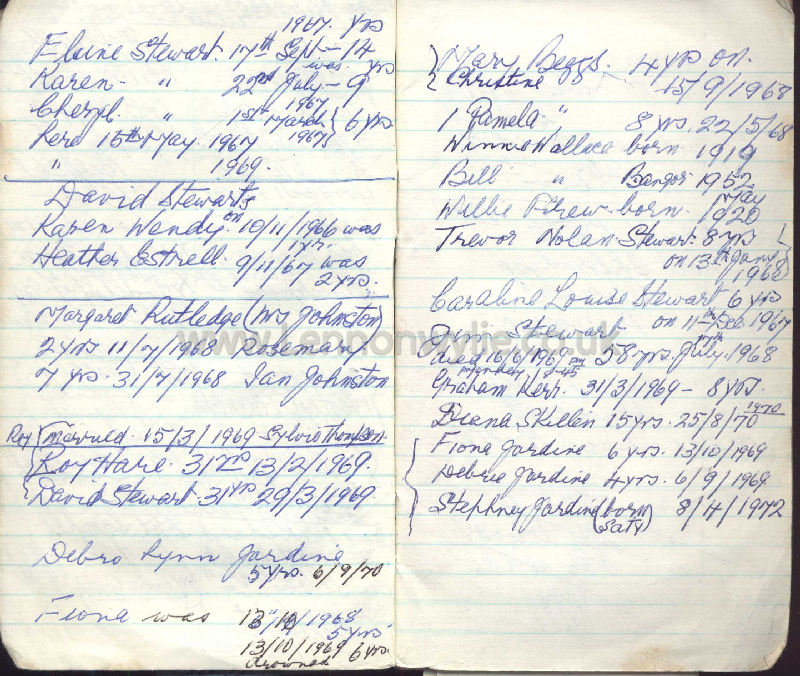 1967. yrs
Elaine Stewart. 17th Sept - 14
was yrs
Karen - " 22nd July - 9
1967
Cheryl. " 1st March } 6 yrs
15th May. 1967 1967
" 1969.
David Stewarts
Karen Wendy. on 10/11/1966 was
1 yr.
Heather Estrell. 9/11/67 was
2 yrs.
Margaret Rutledge (Mrs Johnston)
2 yrs 11/7/1968 Rosemary
7 yrs. 31/7/1968 Ian Johnston
Roy { Married. 15/3/1969 Sylvia Thompson.
Roy Hare. 31 yrs 13/2/1969.
David Stewart. 31 yrs 29/3/1969
Debro Lynn Jardine
5 yrs. 6/9/70
Fiona was 1968
5 yrs
13/10/1969 6 yrs.
drowned
Mary Beggs. 4 yrs on.
Christine 15/9/1968
1 Pamela " 8 yrs. 22/5/68
Winnie Wallace born 1919
Bill " Bangor 1952
Willie Drew. born. May 1920
Trevor Nolan Stewart. 8 yrs
on 13th Jany 1968
Caraline Louise Stewart 6 yrs
on 11th Dec 1967
Stewart
died 16/6/1969 58 yrs. July. 1968
Graham Kerr. 31/3/1969 - 8 yrs.
1970
Diana Skillen 15 yrs. 25/8/70
Fiona Jardine 6 yrs. 13/10/1969
Debrie Jardine 4 yrs. 6/9/1969
Stephney Jardine (born 8/4/1972
Saty)
www.Lennonwylie.co.uk